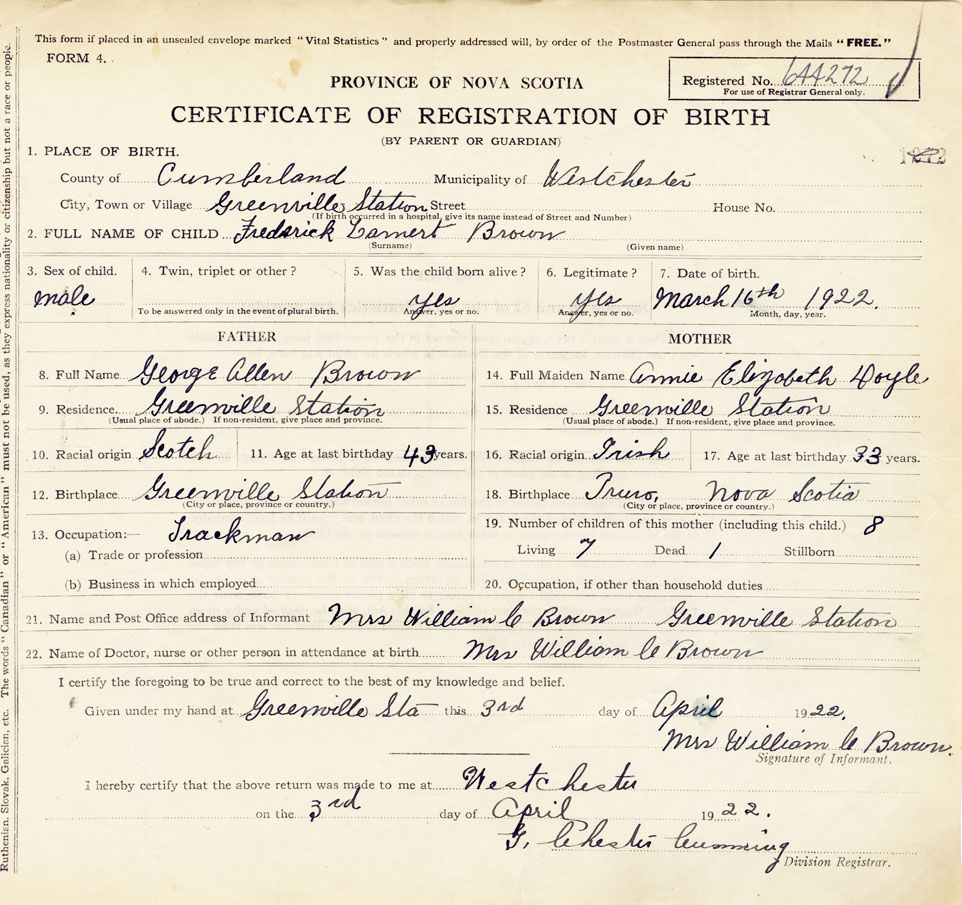 This form if placed in an unsealed envelope marked "Vital Statistics" and properly addressed will, by order of the Postmaster General pass through the Mails "FREE."
FORM 4.
PROVINCE OF NOVA SCOTIA
Registered No. 644272
For use of Registrar General only.
CERTIFICATE OF REGISTRATION OF BIRTH
(BY PARENT OR GUARDIAN)
1. PLACE OF BIRTH.
County of Cumberland Municipality of Westchester
City, Town or Village Greenville Station Street House No.
(If birth occurred in a hospital, give its name instead of Street and Number)
2. FULL NAME OF CHILD Frederick Lamert Brown
(Surname) (Given name)
3. Sex of child. 4. Twin, triplet or other? 5. Was the child born alive? 6. Legitimate? 7. Date of birth.
male yes yes March 16th 1922.
To be answered only in the event of plural birth. Answer, yes or no. Answer, yes or no. Month, day, year.
FATHER MOTHER
8. Full Name George Allen Brown 14. Full Maiden Name Annie Elizabeth Doyle
9. Residence Greenville Station 15. Residence Greenville Station
(Usual place of abode.) If non-resident, give place and province. (Usual place of abode.) If non-resident, give place and province.
10. Racial origin Scotch 11. Age at last birthday 43 years. 16. Racial origin Irish 17. Age at last birthday 33 years.
12. Birthplace Greenville Station 18. Birthplace Truro, Nova Scotia
(City or place, province or country.) (City or place, province or country.)
13. Occupation:— Trackman 19. Number of children of this mother (including this child.) 8
(a) Trade or profession Living 7 Dead 1 Stillborn
(b) Business in which employed 20. Occupation, if other than household duties
21. Name and Post Office address of Informant Mrs William C Brown Greenville Station
22. Name of Doctor, nurse or other person in attendance at birth Mrs William C Brown
I certify the foregoing to be true and correct to the best of my knowledge and belief.
Given under my hand at Greenville Sta this 3rd day of April 1922.
Mrs William C Brown.
Signature of Informant.
I hereby certify that the above return was made to me at Westchester
on the 3rd day of April 1922.
G. Chester Cumming
Division Registrar.
Ruthenian, Slovak, Galician, etc. The words "Canadian" or "American" must not be used, as they express nationality or citizenship but not a race or people.